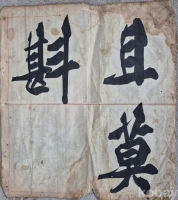 且莫
斟